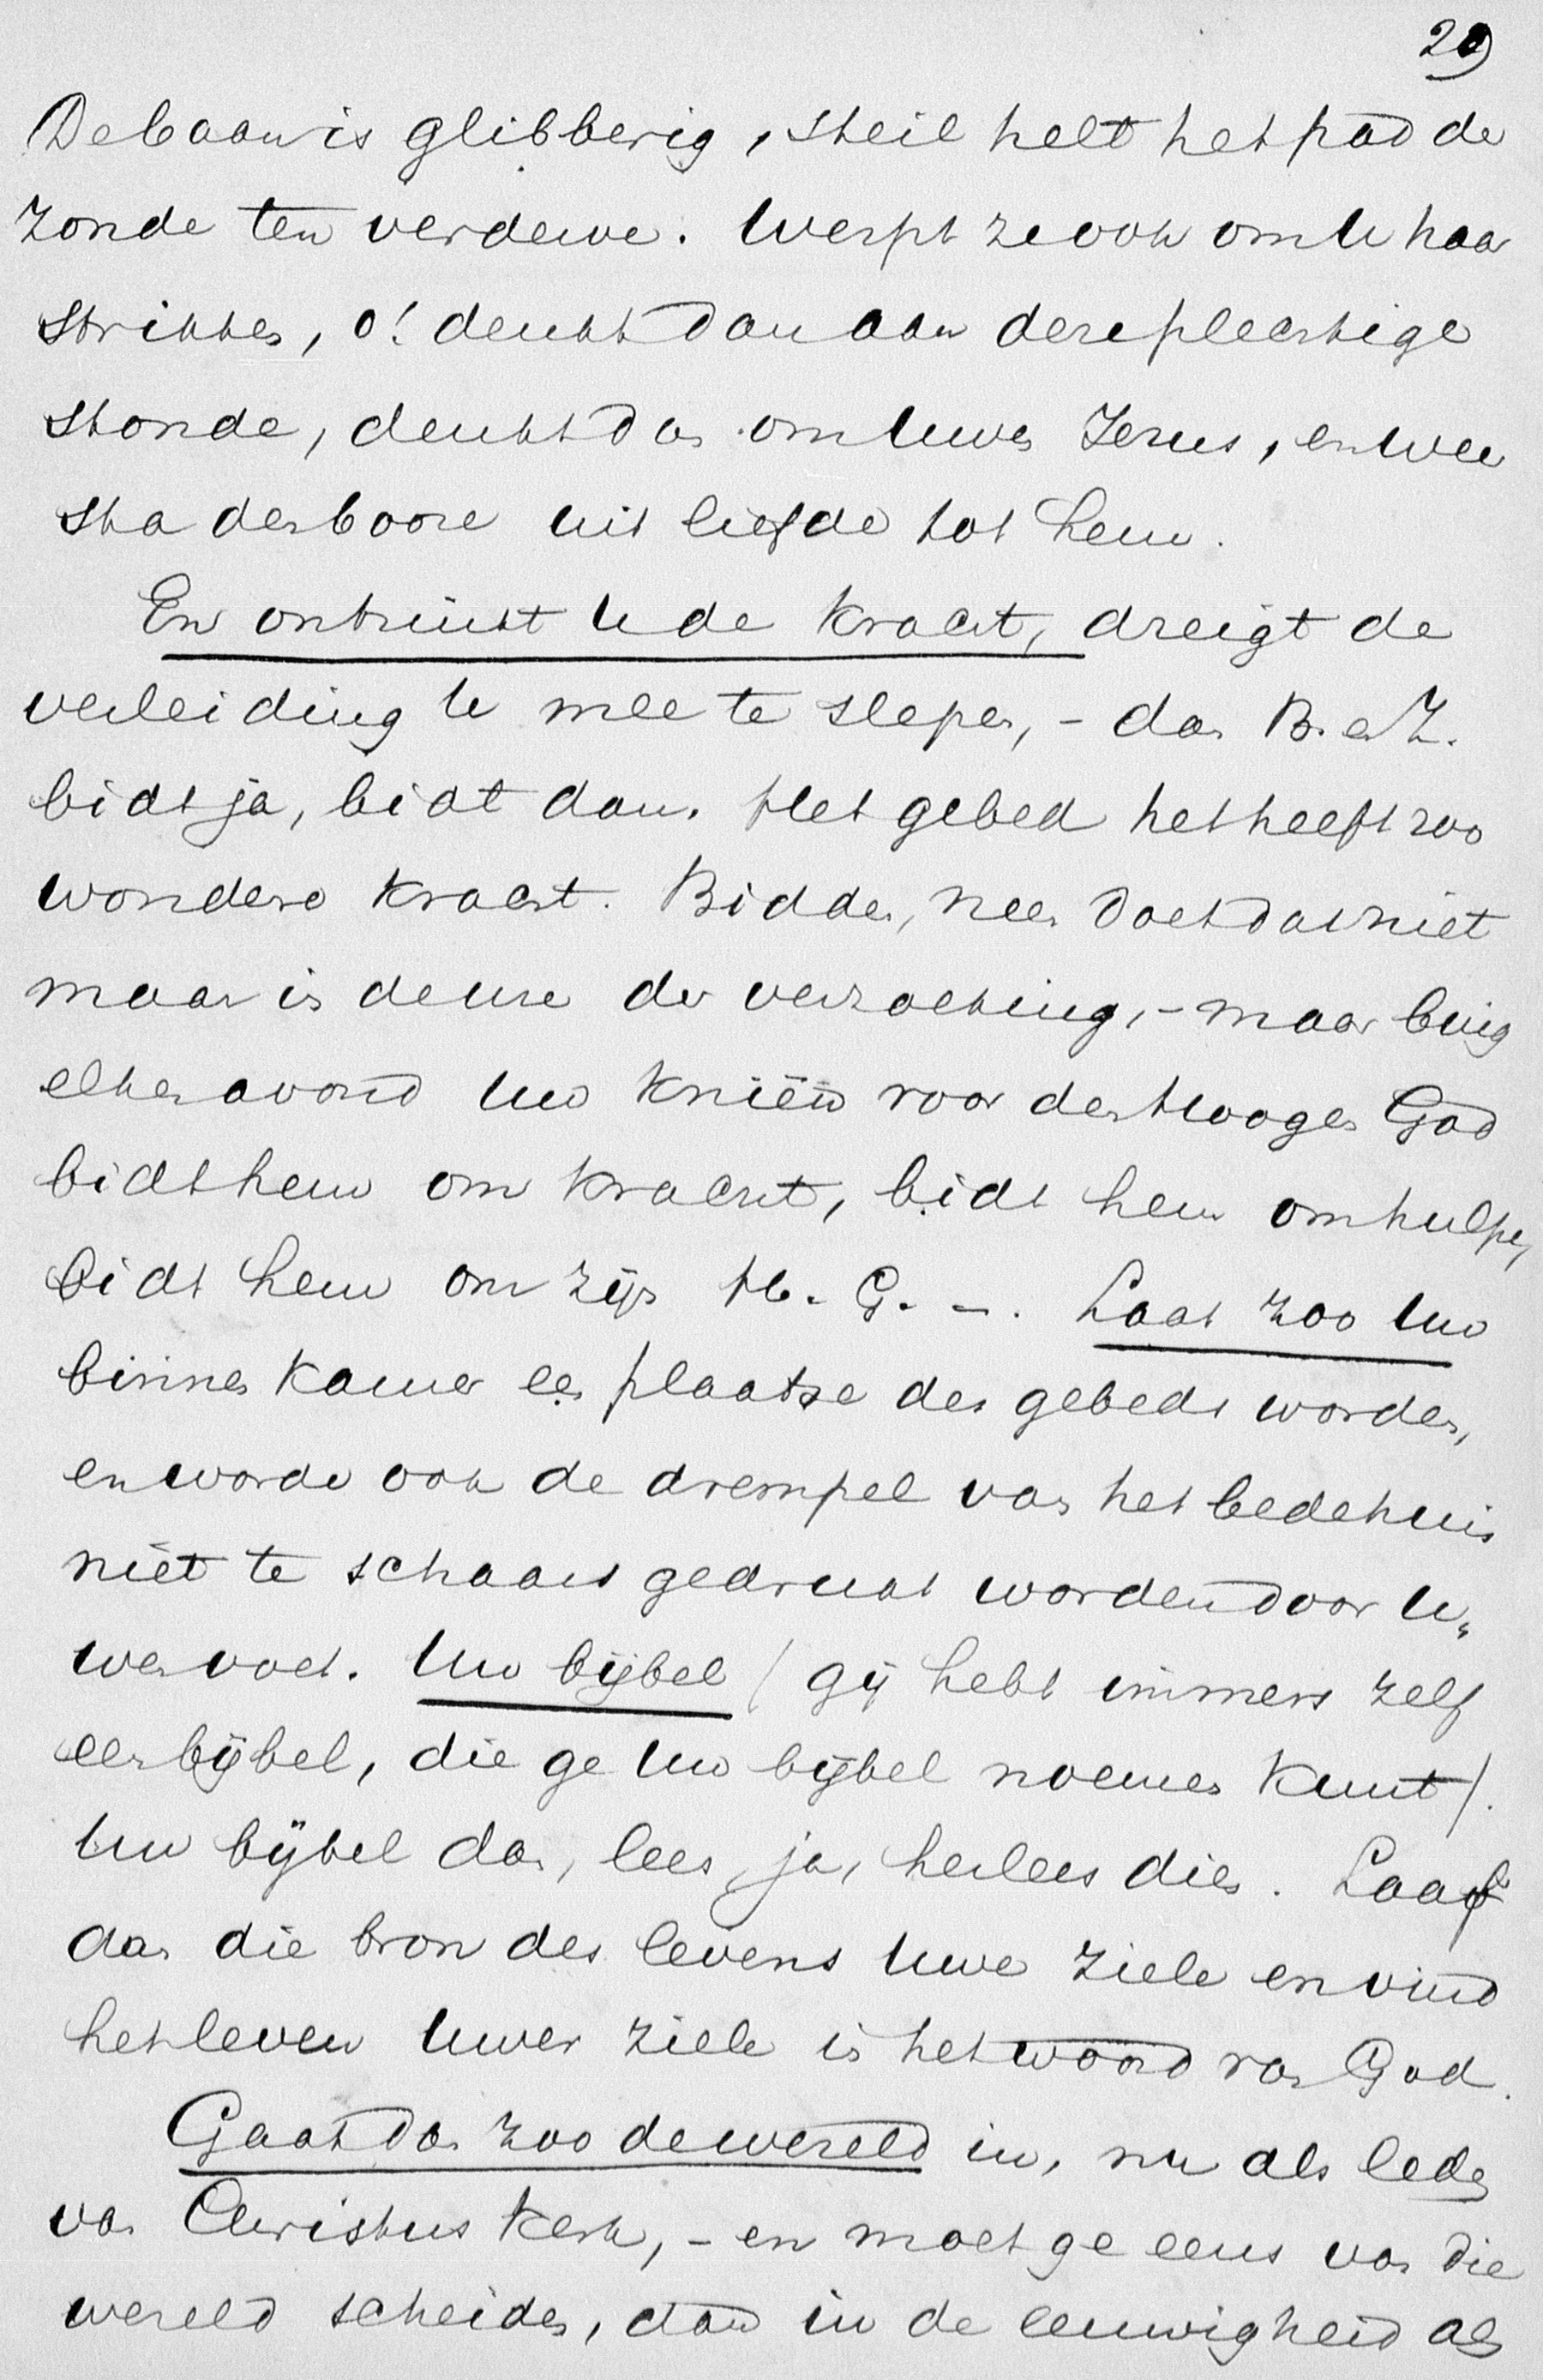 29
De baan is glibberig, steil helt het pad der
zonde ten verderve. Werpt ze ook om U haar
strikken, o! denkt dan aan deze plechtige
stonde, denkt dan om Uwen Jezus, en weer
sta den booze uit liefde tot hem.
En ontzinkt U de kracht, dreigt de
verleiding U mee te slepen, - dan B. en Z.
bidt ja, bidt dan. Het gebed het heeft zoo
wondere kracht. Bidden, neen doet dat niet
maar in de ure der verzoeking, - maar buig
elken avond Uw knieën voor den Hoogen God
bidt hem om kracht, bidt hem om hulpe,
bidt hem om zijn H. G. -. Laat zoo Uw
binnenkamer een plaatse des gebeds worden,
en worde ook de drempel van het bedehuis
niet te schaars gedrukt worden door U„
wen voet. Uw bijbel / gij hebt immers zelf
een bijbel, die ge Uw bijbel noemen kunt /.
Uw bijbel dan, lees, ja, herlees dien. Laaf
dan die bron des levens Uwe ziele en vind
het leven Uwer ziele in het woord van God.
Gaat dan zoo de wereld in, nu als leden
van Christus kerk, - en moet ge eens van die
wereld scheiden, dan in de eeuwigheid als